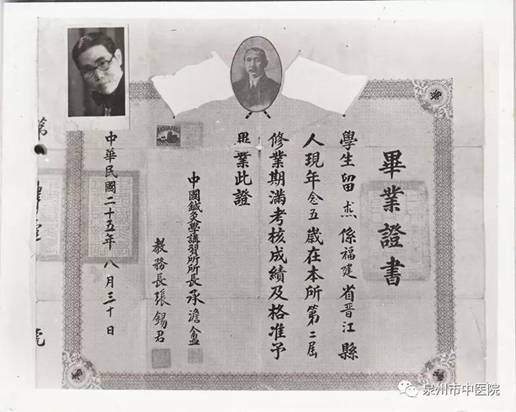 畢業證書
學生留章係福建省晋江縣
人現年念五歲在本所第二屆
修業期滿考核成績及格准予
畢業此證
中國鍼灸學講習所所長承澹盦
教務長張錫君
中華民國二十五年八月三十日
第
號
泉州市中医院